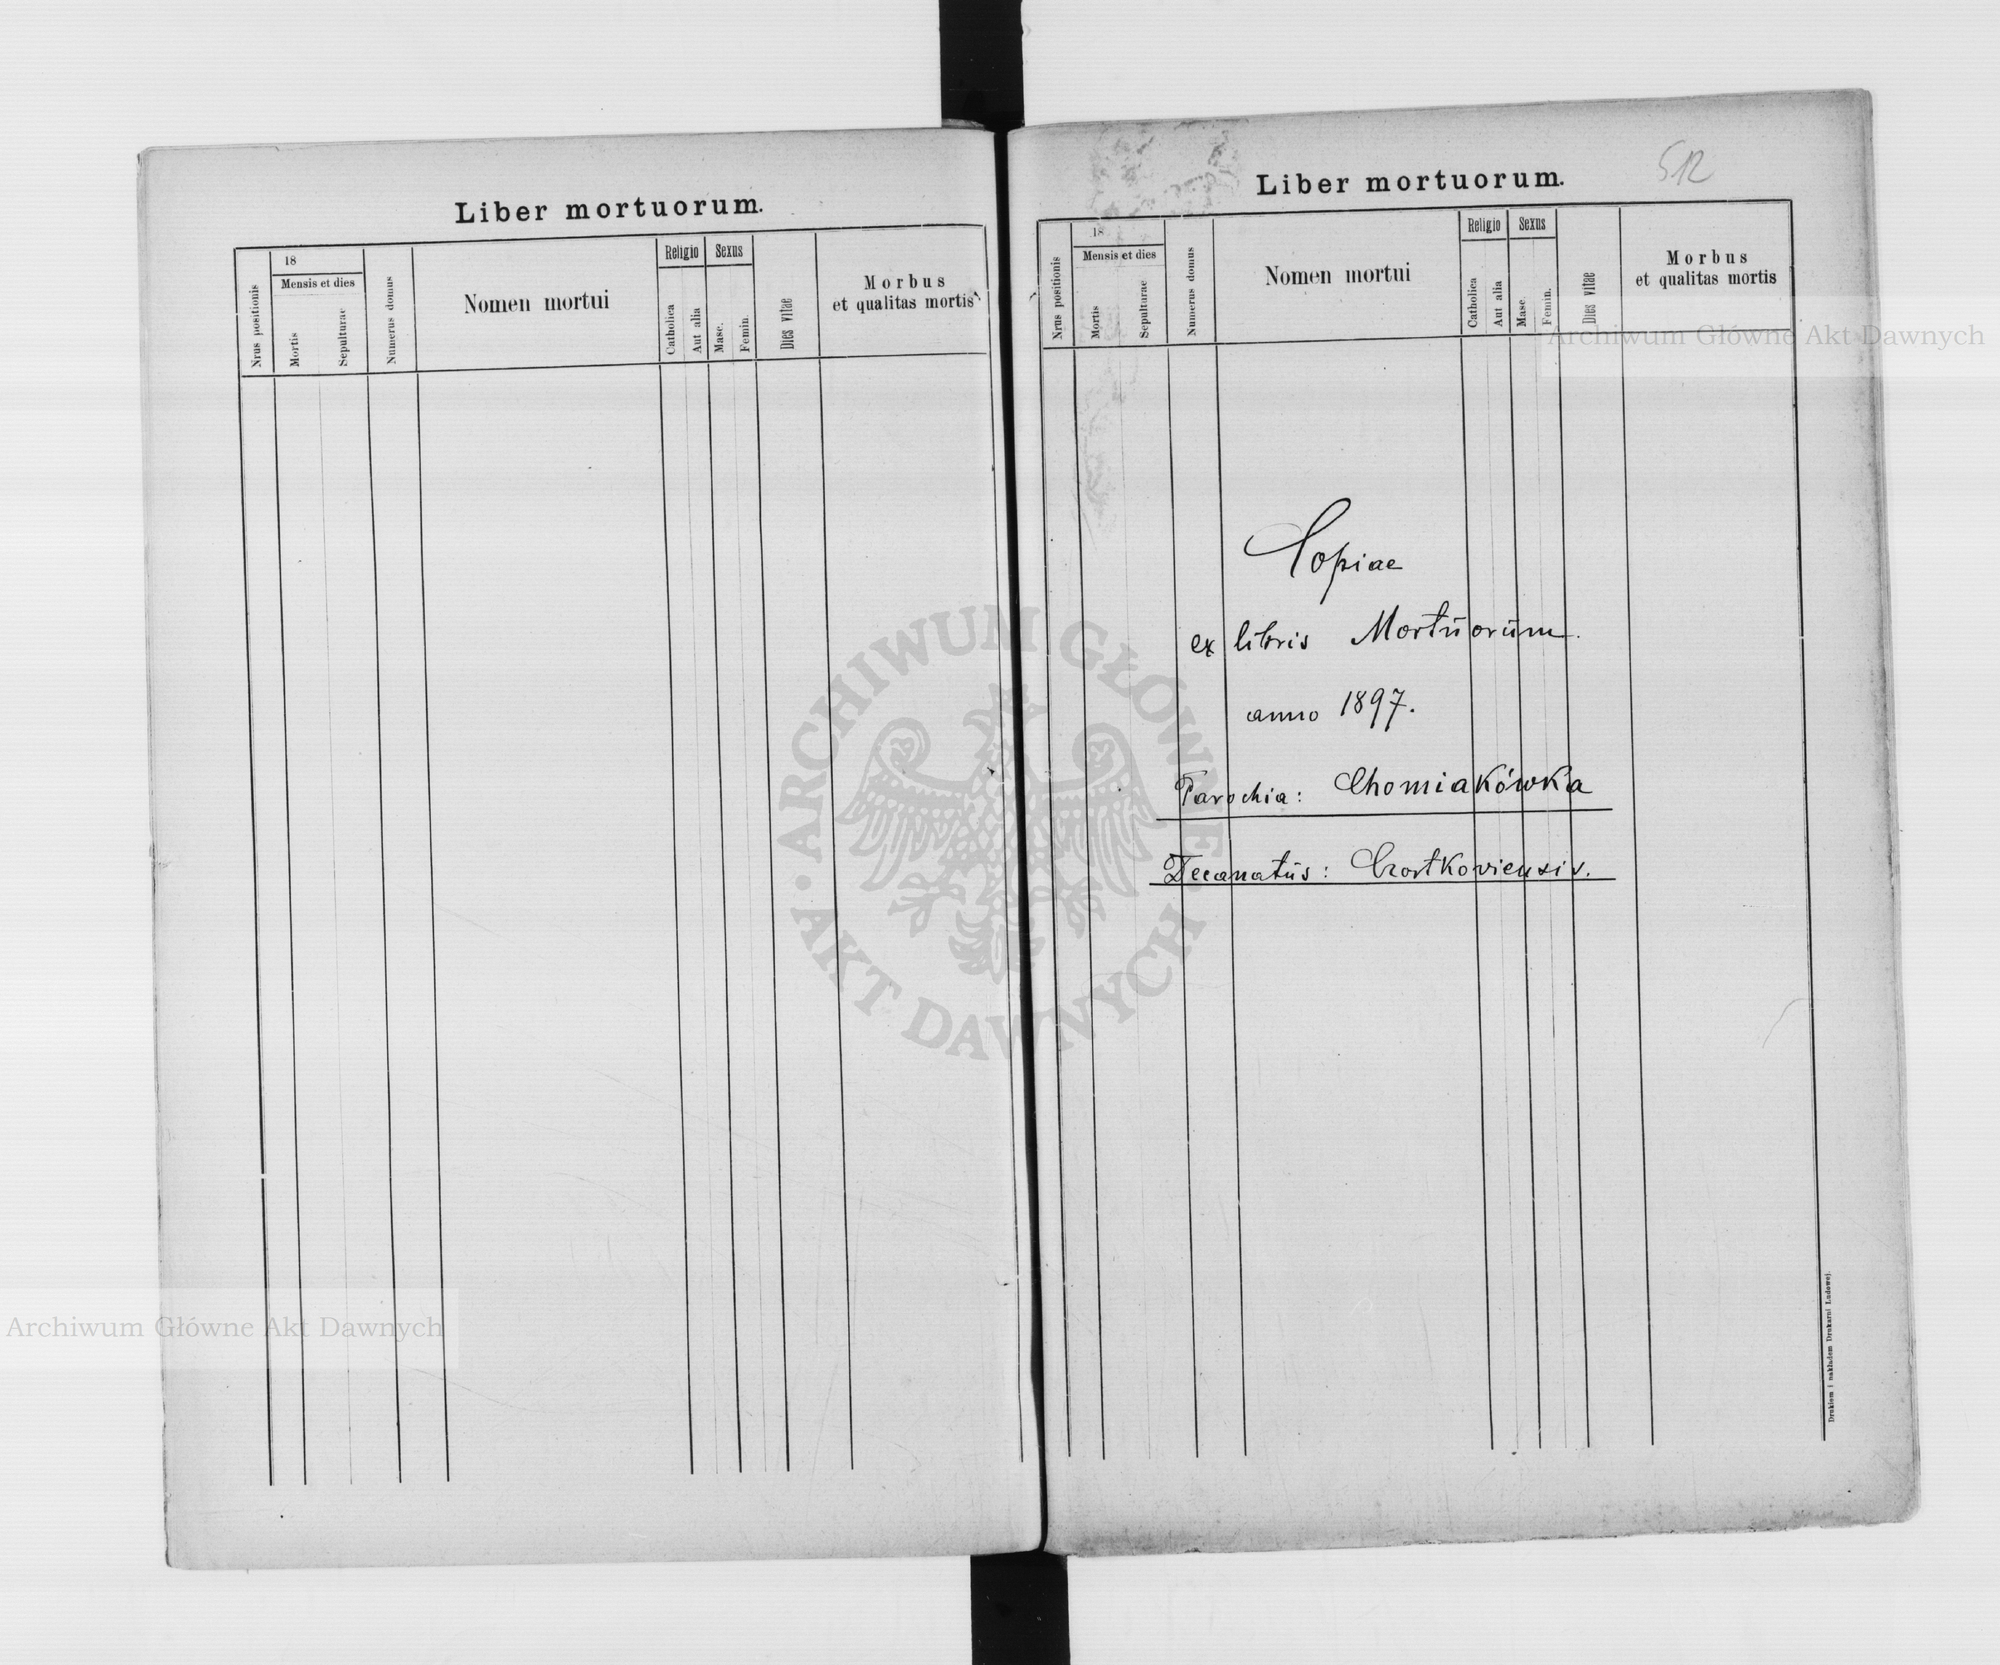 Liber mortuorum.
Nrus positionis
18
Mensis et dies
Mortis
Sepulturae
Numerus domus
Nomen mortui
Religio
Catholica
Aut alia
Sexus
Masc.
Femin.
Dies vitae
Morbus
et qualitas mortis
512
Liber mortuorum.
Nrus positionis
18
Mensis et dies
Mortis
Sepulturae
Numerus domus
Nomen mortui
Religio
Catholica
Aut alia
Sexus
Masc.
Femin.
Dies vitae
Morbus
et qualitas mortis
Copiae
ex libris Mortŭorŭm.
anno 1897.
Parochia: Chomiakówka
Decanatŭs: Czortkoviensis.
Drukiem i nakładem Drukarni Ludowej.
Archiwum Główne Akt Dawnych
ARCHIWUM GŁÓWNE
AKT DAWNYCH
Archiwum Główne Akt Dawnych